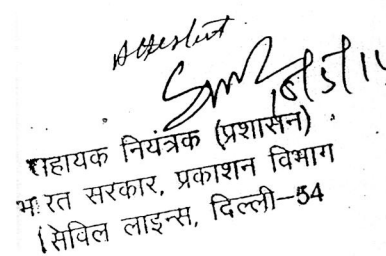 Attested
16/5/11
सहायक नियंत्रक (प्रशासन)
भारत सरकार, प्रकाशन विभाग
सिविल लाइन्स, दिल्ली-54